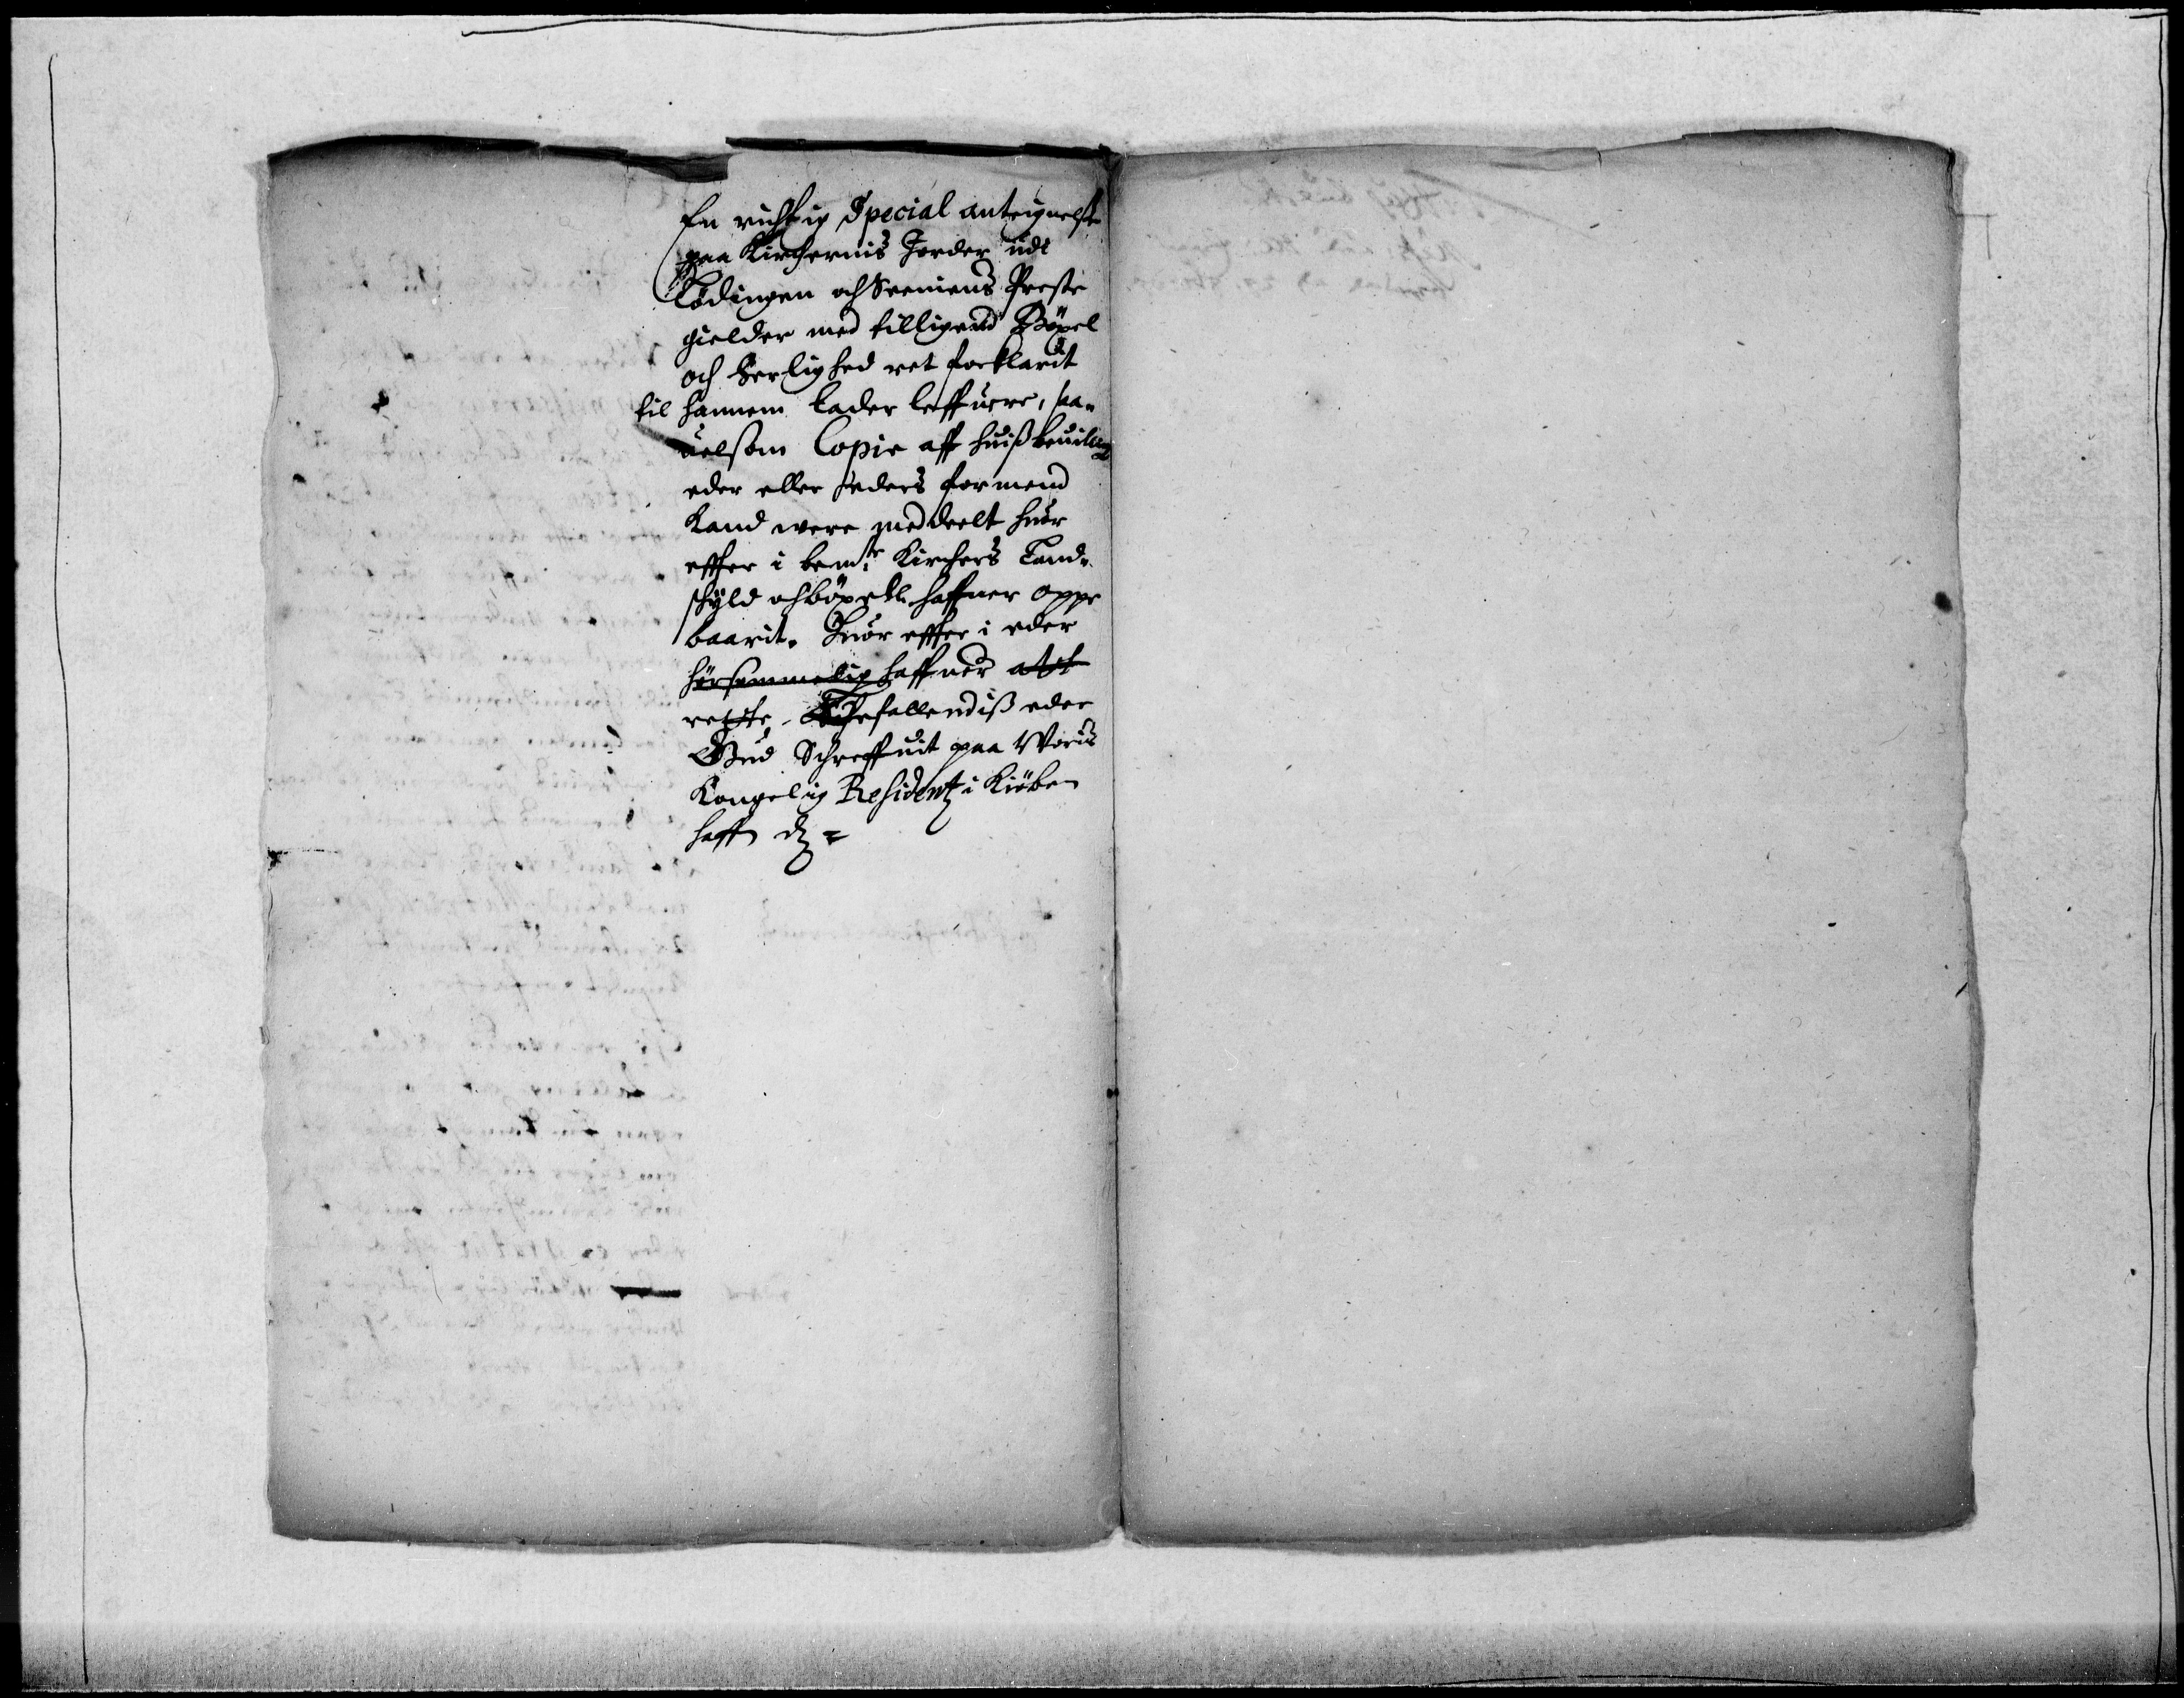 En richtig Special antegnelse
paa Kirchernis Jorder udi
Lödingen och Seeniens Preste
gielder med tilligend Böxel
och herlighed ret forklarit
til hannem lader leffuere, saa-
uelsom Copie aff huiß beuiling
eder eller eders formend
kand were meddeelt huor
effter i bemte Kirchers Land-
skyld och böxell haffuer oppe
baarit. Huor effter i eder
hörsommelig haffuer att
rette. Befallendiß eder
Gud Schreffuit paa Woris
Kongelig Residentz i Kiöben
haffn